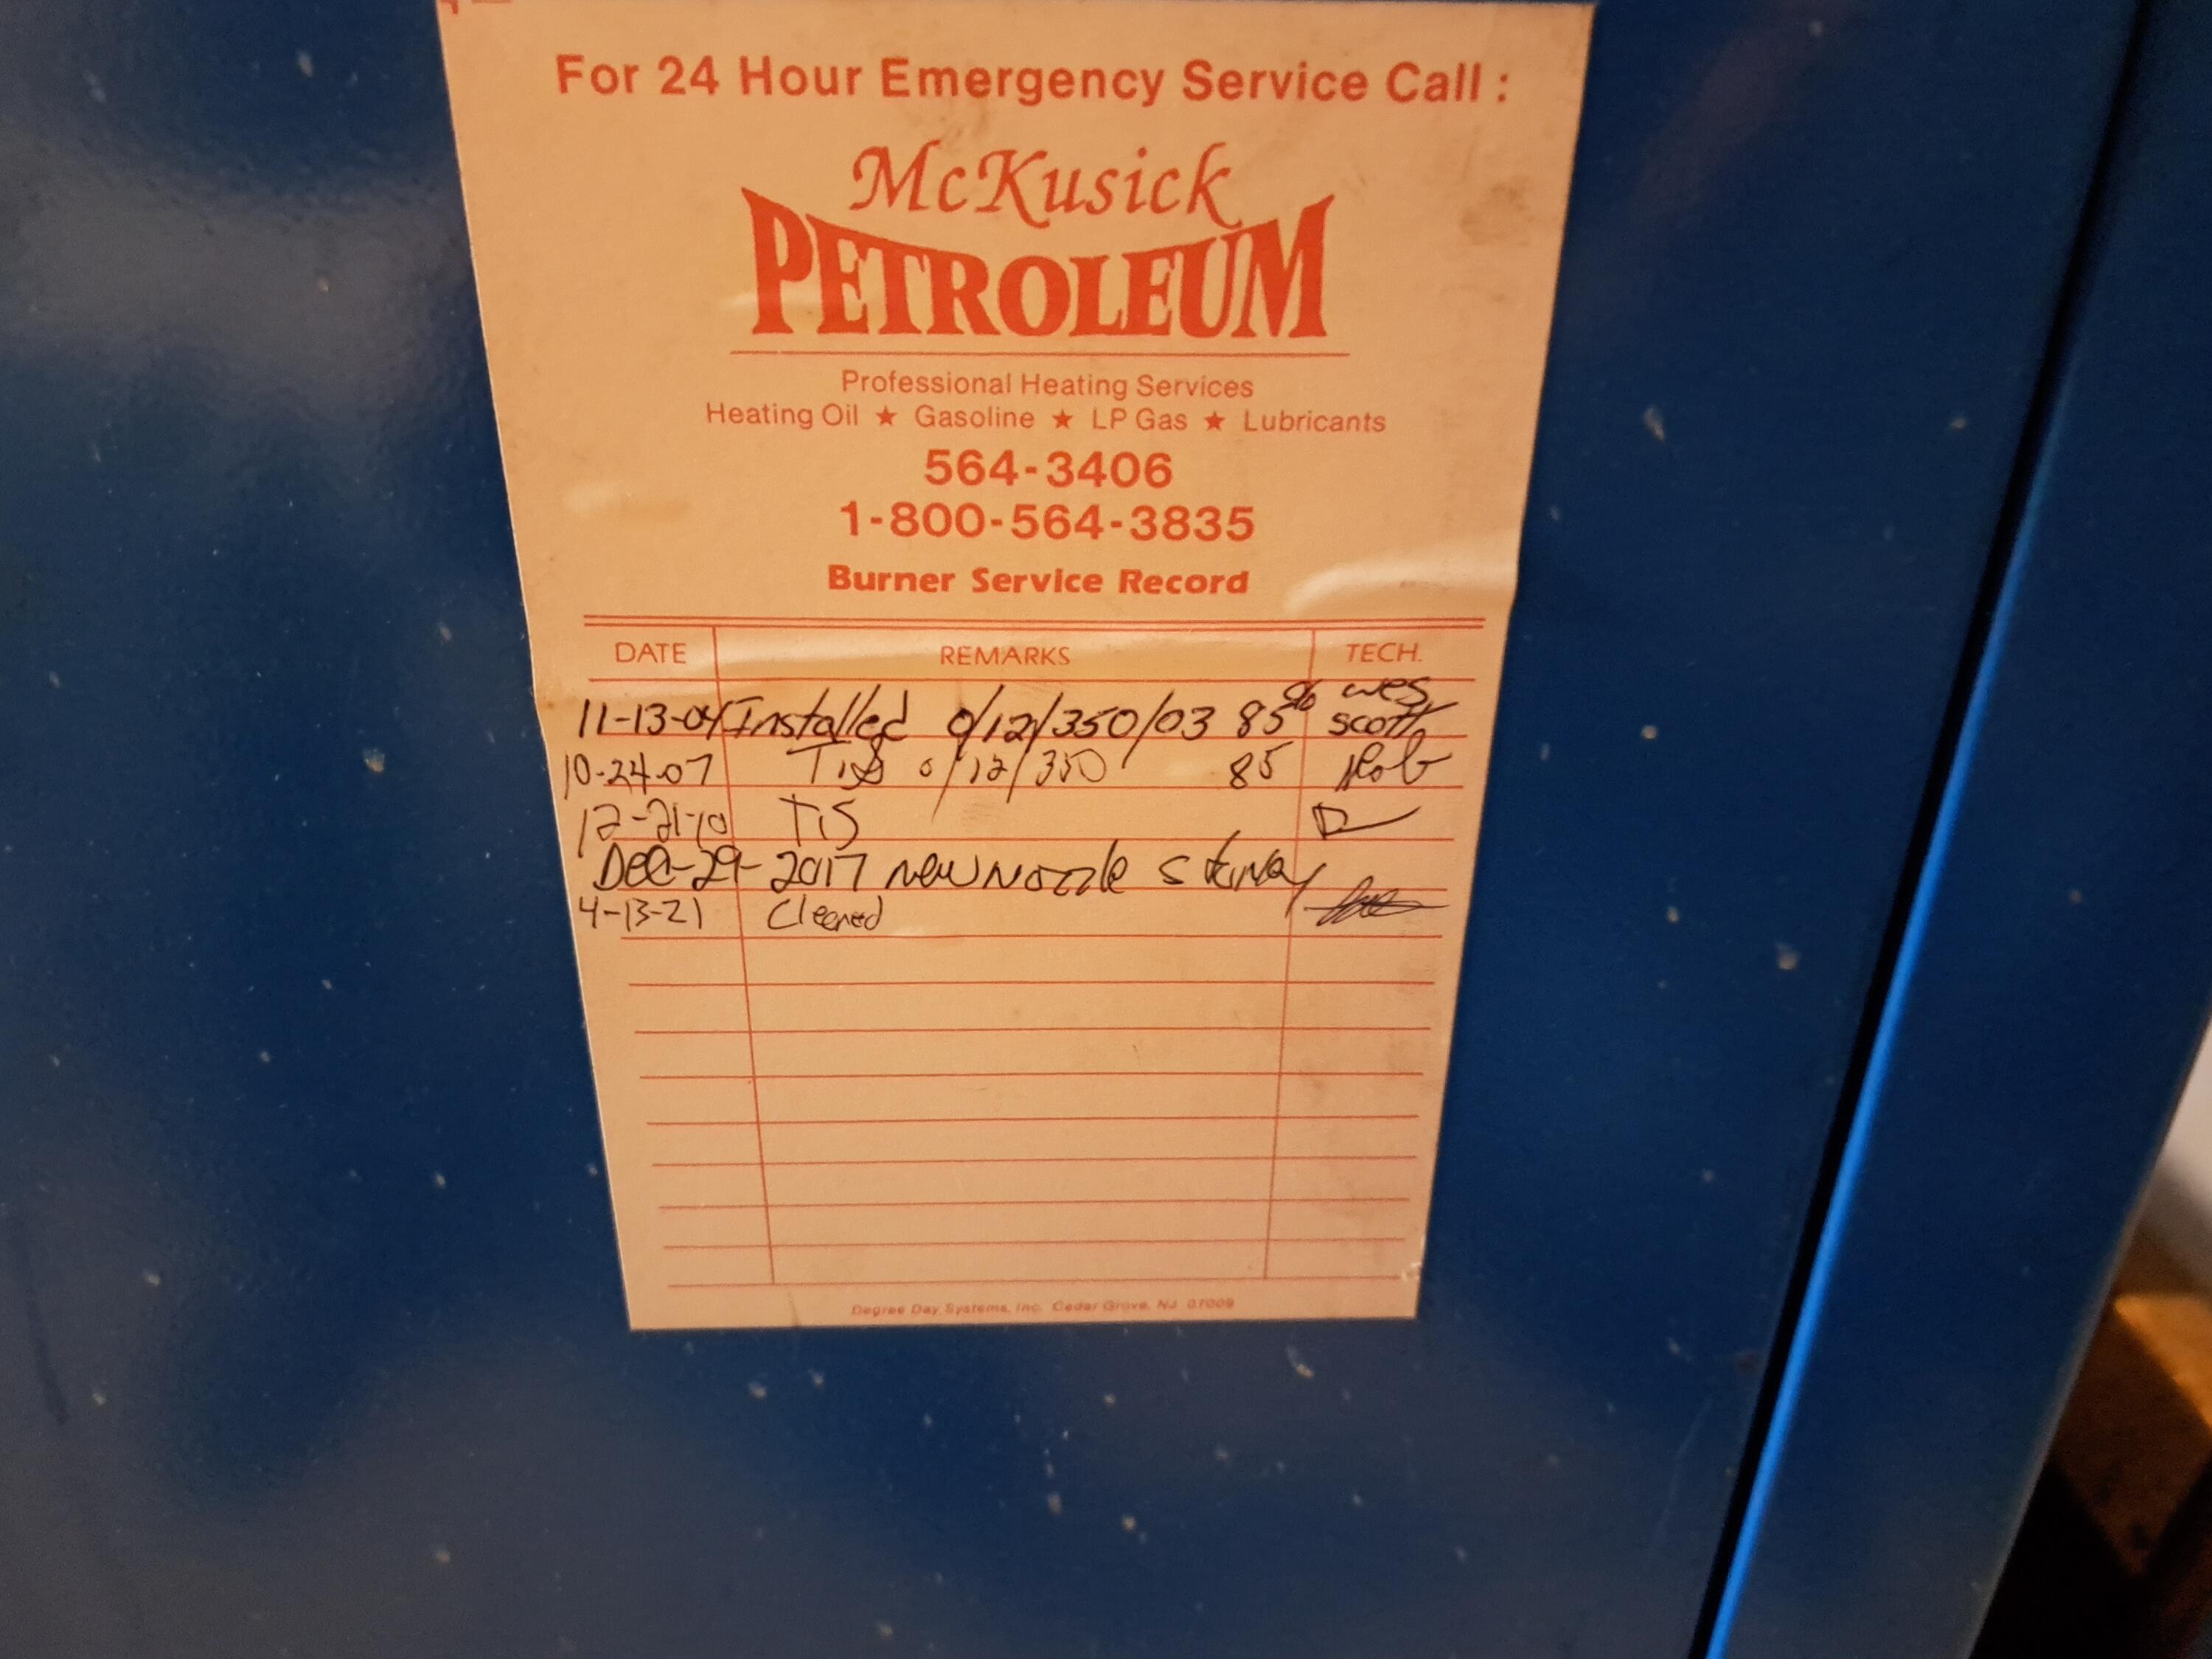 For 24 Hour Emergency Service Call :
McKusick
PETROLEUM
Professional Heating Services
Heating Oil ★ Gasoline ★ LP Gas ★ Lubricants
564-3406
1-800-564-3835
Burner Service Record
DATE REMARKS TECH.
11-13-04 Installed 0/12/350/03 85% Wes Scott
10-24-07 TiS 0/12/350 85 Rob
12-21-10 TiS
Dec-29-2017 New Nozzle
4-13-21 Cleaned
Degree Day Systems, Inc. Cedar Grove, NJ 07009